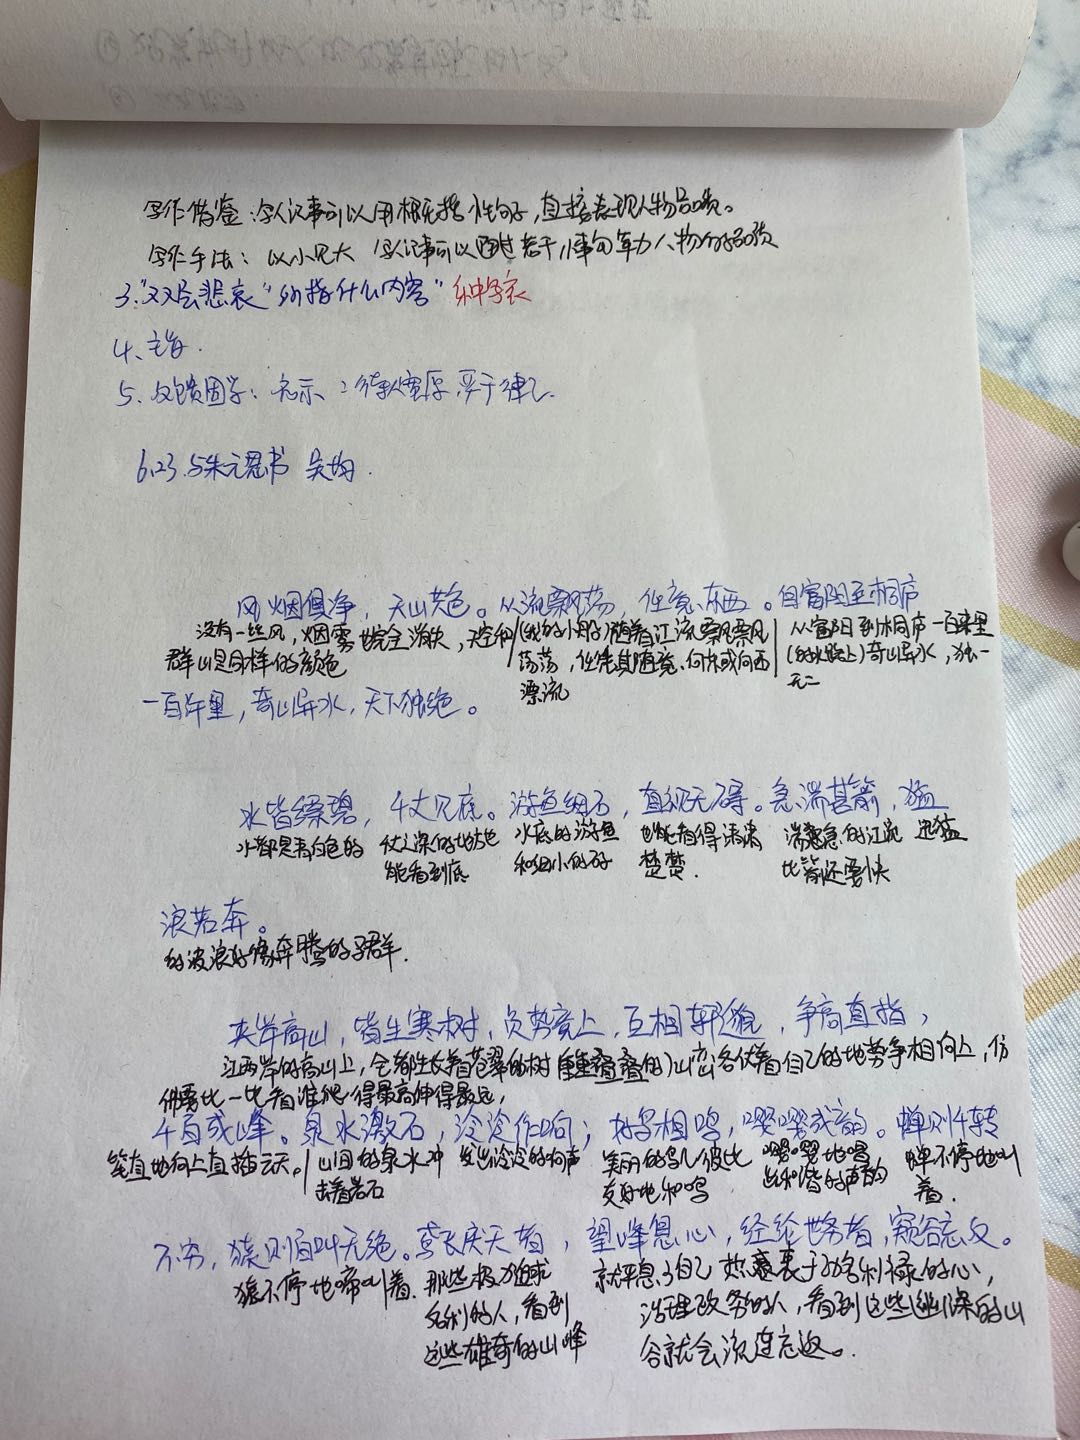 写作借鉴:写人记事可以用概括性句子,直接表现人物品质。
写作手法:以小见大 写人记事可以通过若干小事勾勒人物的品质
3.“双层悲哀”所指什么内容”
4、主旨.
5、反馈固学:名示、:待人宽厚,严于律己.
6、23.与朱元思书 吴均.
风烟俱净,天山共色。从流飘荡,任意东西。自富阳至桐庐
没有一丝风,烟雾也完全消失,天空和 (我的小船)随着江流飘飘 从富阳到桐庐一百来里
群山是同样的颜色 荡荡,任凭其随意,向东或向西 (的水路上)奇山异水,独一
漂流 无二
一百许里,奇山异水,天下独绝。
水皆缥碧,千丈见底。游鱼细石,直视无碍。急湍甚箭,猛
水都是青白色的 丈深的地方也 水底的游鱼 也能看得清清 湍急的江流 迅猛
能看到底 和细小的石 楚楚. 比箭还要快
浪若奔。
的波浪好像奔腾的马群.
夹岸高山,皆生寒树,负势竞上,互相轩邈,争高直指,
江两岸的高山上,全都生长着苍翠的树 (重重叠叠的)山峦各仗着自己的地势争相向上,仿
佛要比一比看谁爬得最高伸得最远,
千百成峰。泉水激石,泠泠作响;好鸟相鸣,嘤嘤成韵。蝉则千转
笔直地向上直插云天。山间的泉水冲 发出泠泠的响声 美丽的鸟儿彼此 嘤嘤地唱 蝉不停地叫
击着岩石 友好地和鸣 出和谐的声韵 着.
不穷,猿则百叫无绝。鸢飞戾天者,望峰息心,经纶世务者,窥谷忘反。
猿不停地啼叫着. 那些极力追求 就平息了自己热衷于功名利禄的心,
名利的人,看到 治理政务的人,看到这些幽深的山
这些雄奇的山峰 谷就会流连忘返。